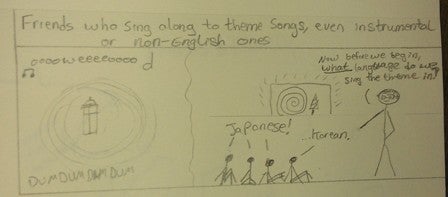 Friends who sing along to theme songs, even instrumental
or non-English ones
oooowèeèeeoooo d
DUM DUM DUM DUM
Now before we begin,
what language do we
sing the theme in?
Japanese!
...Korean.